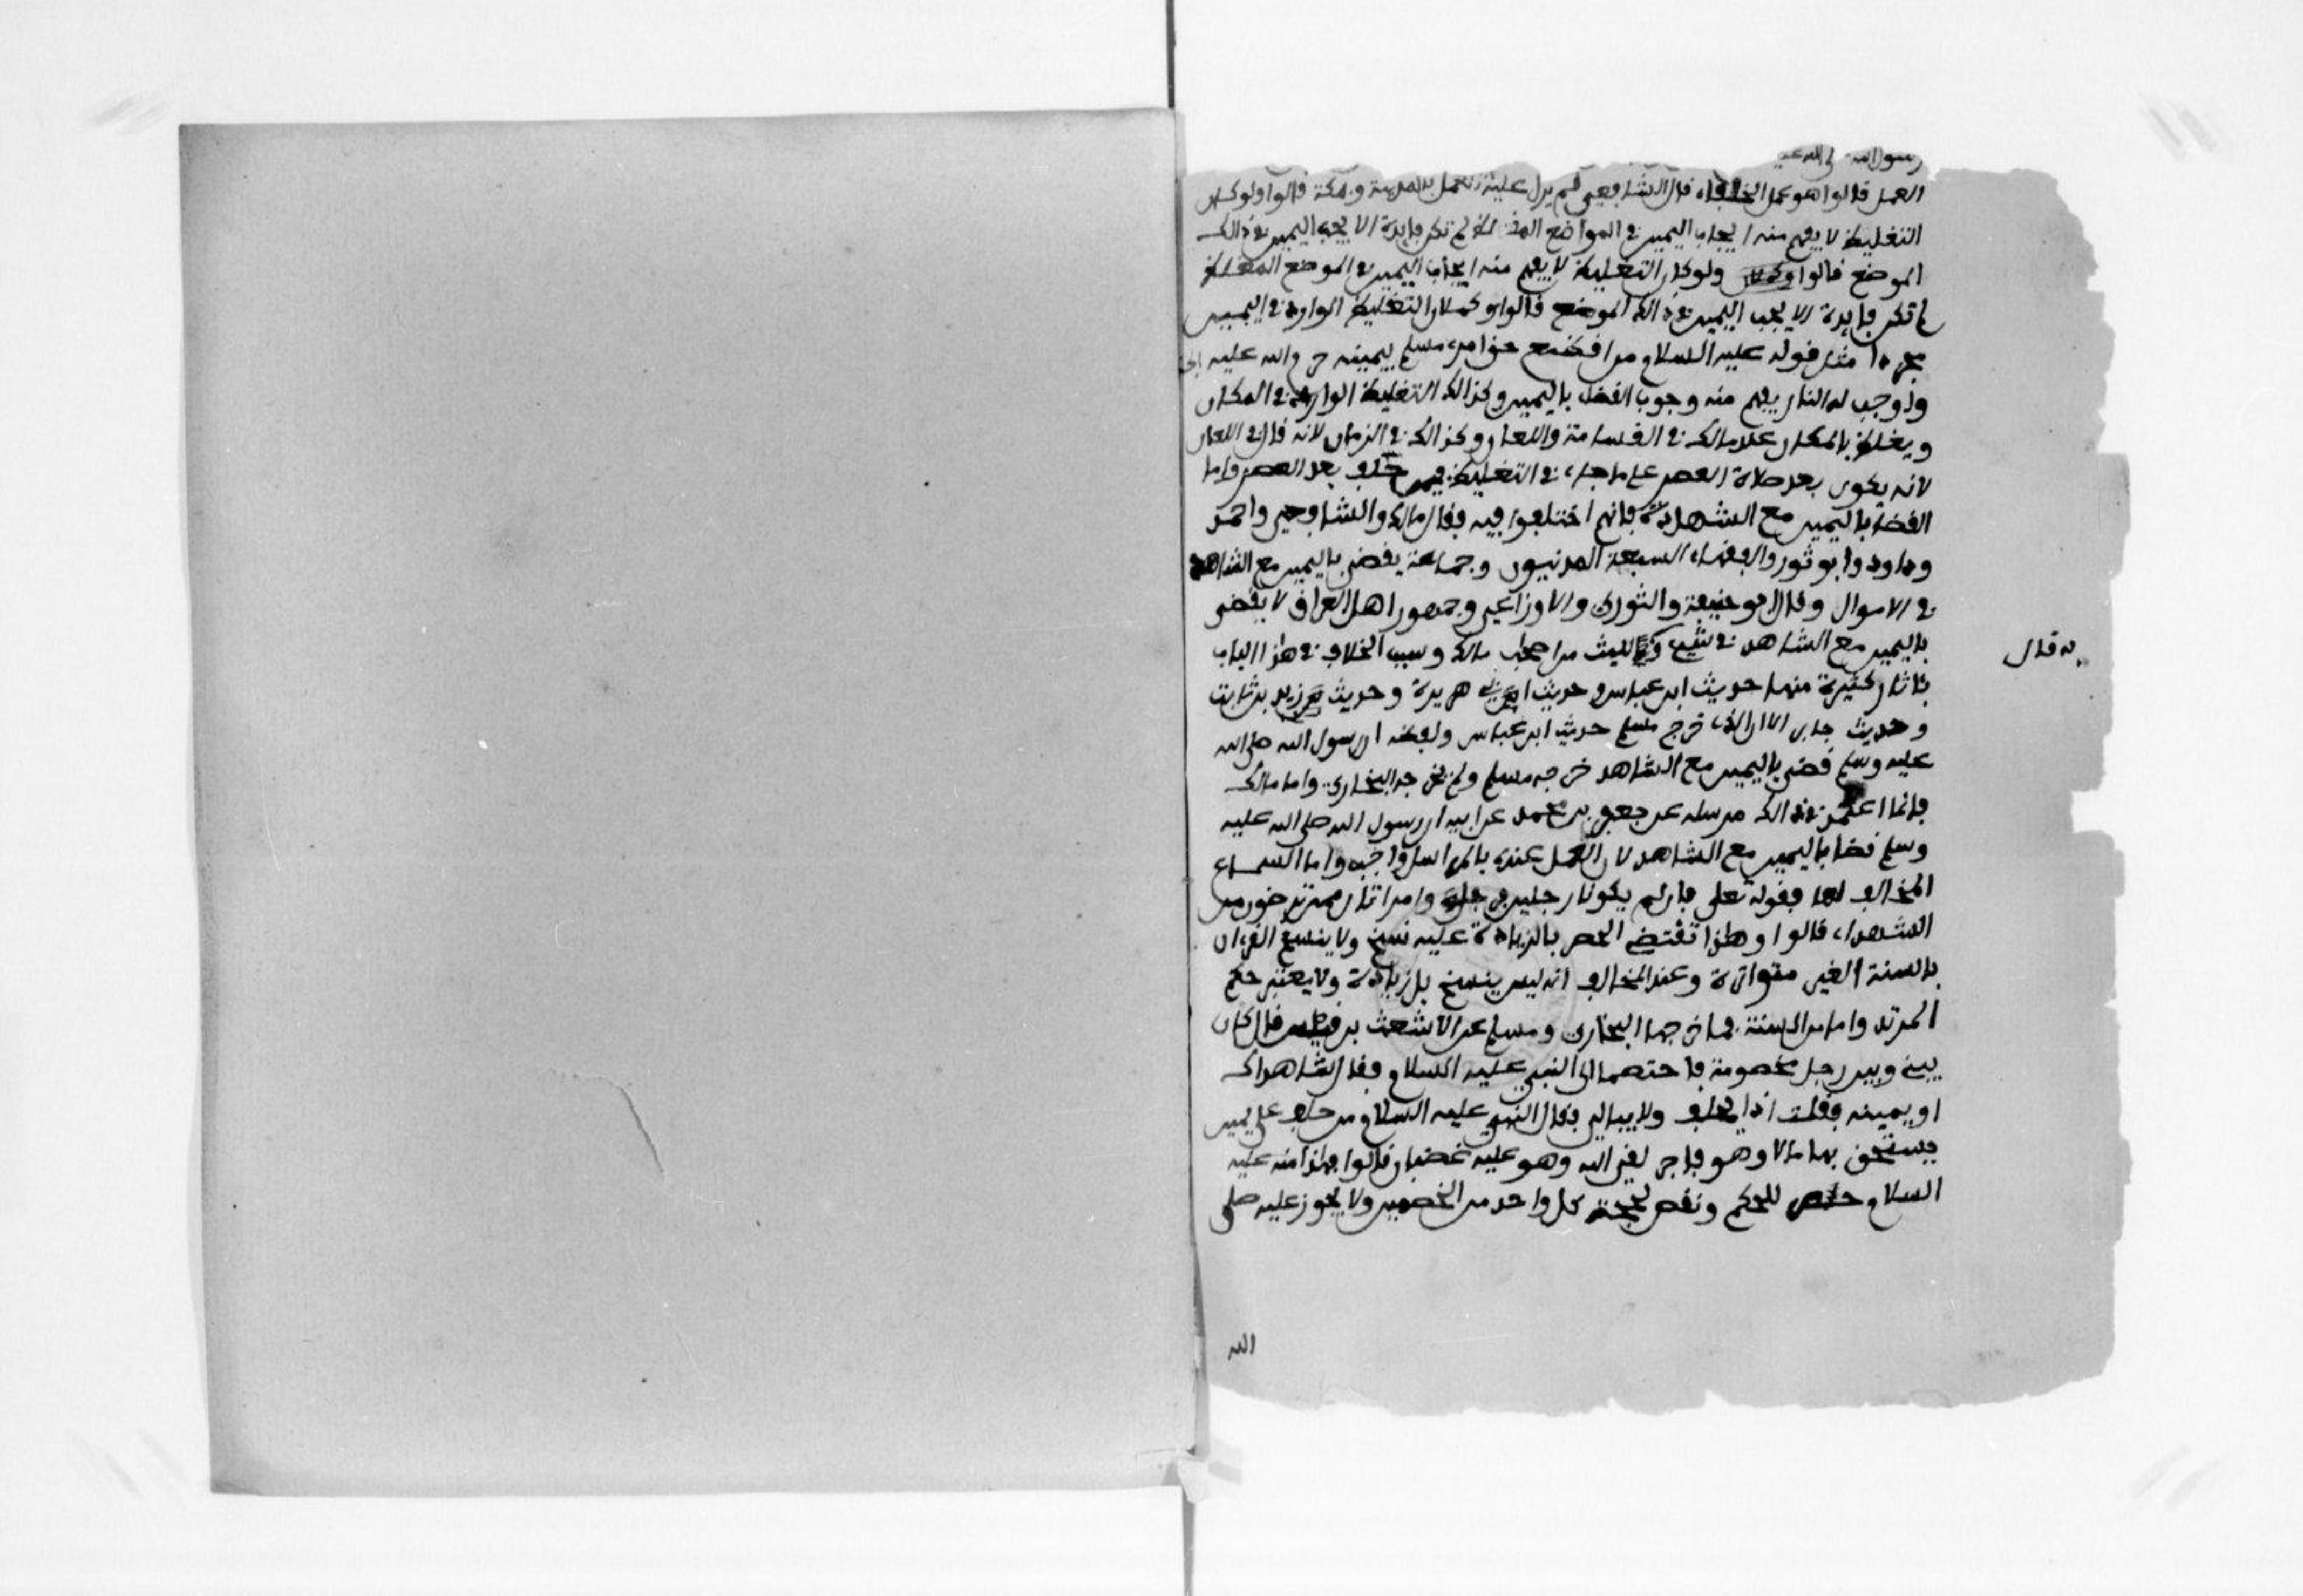 رسول الله صلى الله عليه
العمل قالوا هو عمل الخلفاء قال الشافعي لم يزل عليه العمل بالمدينة وبمكة قالوا ولو كان
التغليظ لا يفهم منه ايجاب اليمين في المواضع المغلظ لم تكن فايدة الا يجب اليمين في ذالك
الموضع قالوا وكما ولو كان التغليظ لا يفهم منه ايجاب اليمين في الموضع المغلظ
لم تكن فايدة الا يجب اليمين في ذالك الموضع قالوا وكما ان التغليظ الوارد في اليمين
مجردا مثل قوله عليه السلام من اقتطع حق امرء مسلم بيمينه حرم الله عليه الجنة
واوجب له النار يفهم منه وجوب القضاء باليمين وكذالك التغليظ الوارد في المكان
ويغلظ بالمكان عند مالك في القسامة واللعان وكذالك في الزمان لانه قال في اللعان
لانه يكون بعد صلاة العصر على ما جاء في التغليظ فيمن حلف بعد العصر واما
القضاء باليمين مع الشهادة فانهم اختلفوا فيه فقال مالك والشافعي واحمد
وداود وابو ثور والفقهاء السبعة المدنيون وجماعة يقضى باليمين مع الشاهد
في الاموال وقال ابو حنيفة والثوري والاوزاعي وجمهور اهل العراق لا يقضى
باليمين مع الشاهد في شيء والليث من اصحاب مالك وسبب الخلاف في هذا الباب
به قال
فاثار كثيرة منها حديث ابن عباس وحديث ابي هريرة وحديث زيد بن ثابت
وحديث جابر الا ان الذي خرج مسلم حديث ابن عباس ولفظه ان رسول الله صلى الله
عليه وسلم قضى باليمين مع الشاهد خرجه مسلم ولم يخرجه البخاري واما مالك
فانما اعتمد في ذالك مرسله عن جعفر بن محمد عن ابيه ان رسول الله صلى الله عليه
وسلم قضا باليمين مع الشاهد لان العمل عنده بالمراسل واجب واما السماع
المخالف لها فقوله تعلى فان لم يكونا رجلين فرجل وامراتان ممن ترضون من
الشهداء قالوا وهذا تقتضي الحصر بالزيادة عليه نسخ ولا ينسخ القرءان
بالسنة الغير متواترة وعند المخالف انه ليس بنسخ بل زيادة ولا يعتبر حكم
المرتد واما من السنة فما خرجها البخاري ومسلم عن الاشعث بن قيس قال كان
بيني وبين رجل خصومة فاختصما الى النبي عليه السلام فقال شاهداك
او يمينه فقلت اذا يحلف ولا يبالي فقال النبي عليه السلام من حلف على يمين
يستحق بها مالا وهو فاجر لقي الله وهو عليه غضبان قالوا فهذا منه عليه
السلام للحكم ونقص لحجة كل واحد من الخصمين ولا يجوز عليه صلى
الله